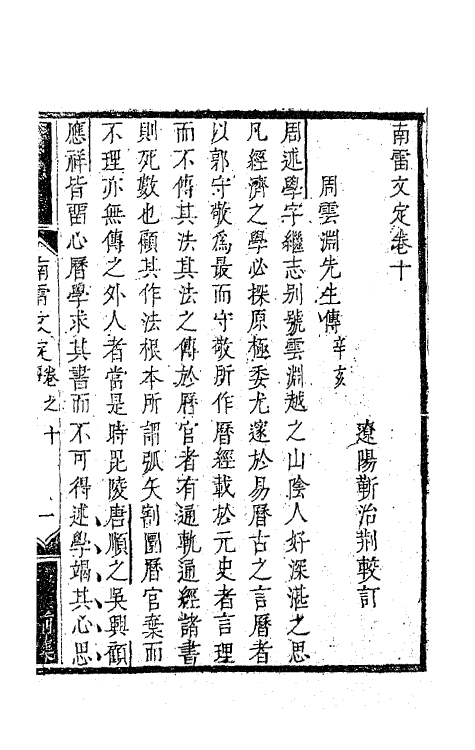 南雷文定卷十
遼陽靳治荆較訂
周雲淵先生傳辛亥
周述學字繼志別號雲淵越之山陰人好深湛之思
凡經濟之學必探原極委尤邃於易曆古之言曆者
以郭守敬爲最而守敬所作曆經載於元史者言理
而不傳其法其法之傳於曆官者有通軌通經諸書
則死數也顧其作法根本所謂弧矢割圜曆官棄而
不理亦無傳之外人者當是時毘陵唐順之吳興顧
應祥皆留心曆學求其書而不可得述學竭其心思
南雷文定
卷之十
一
前集